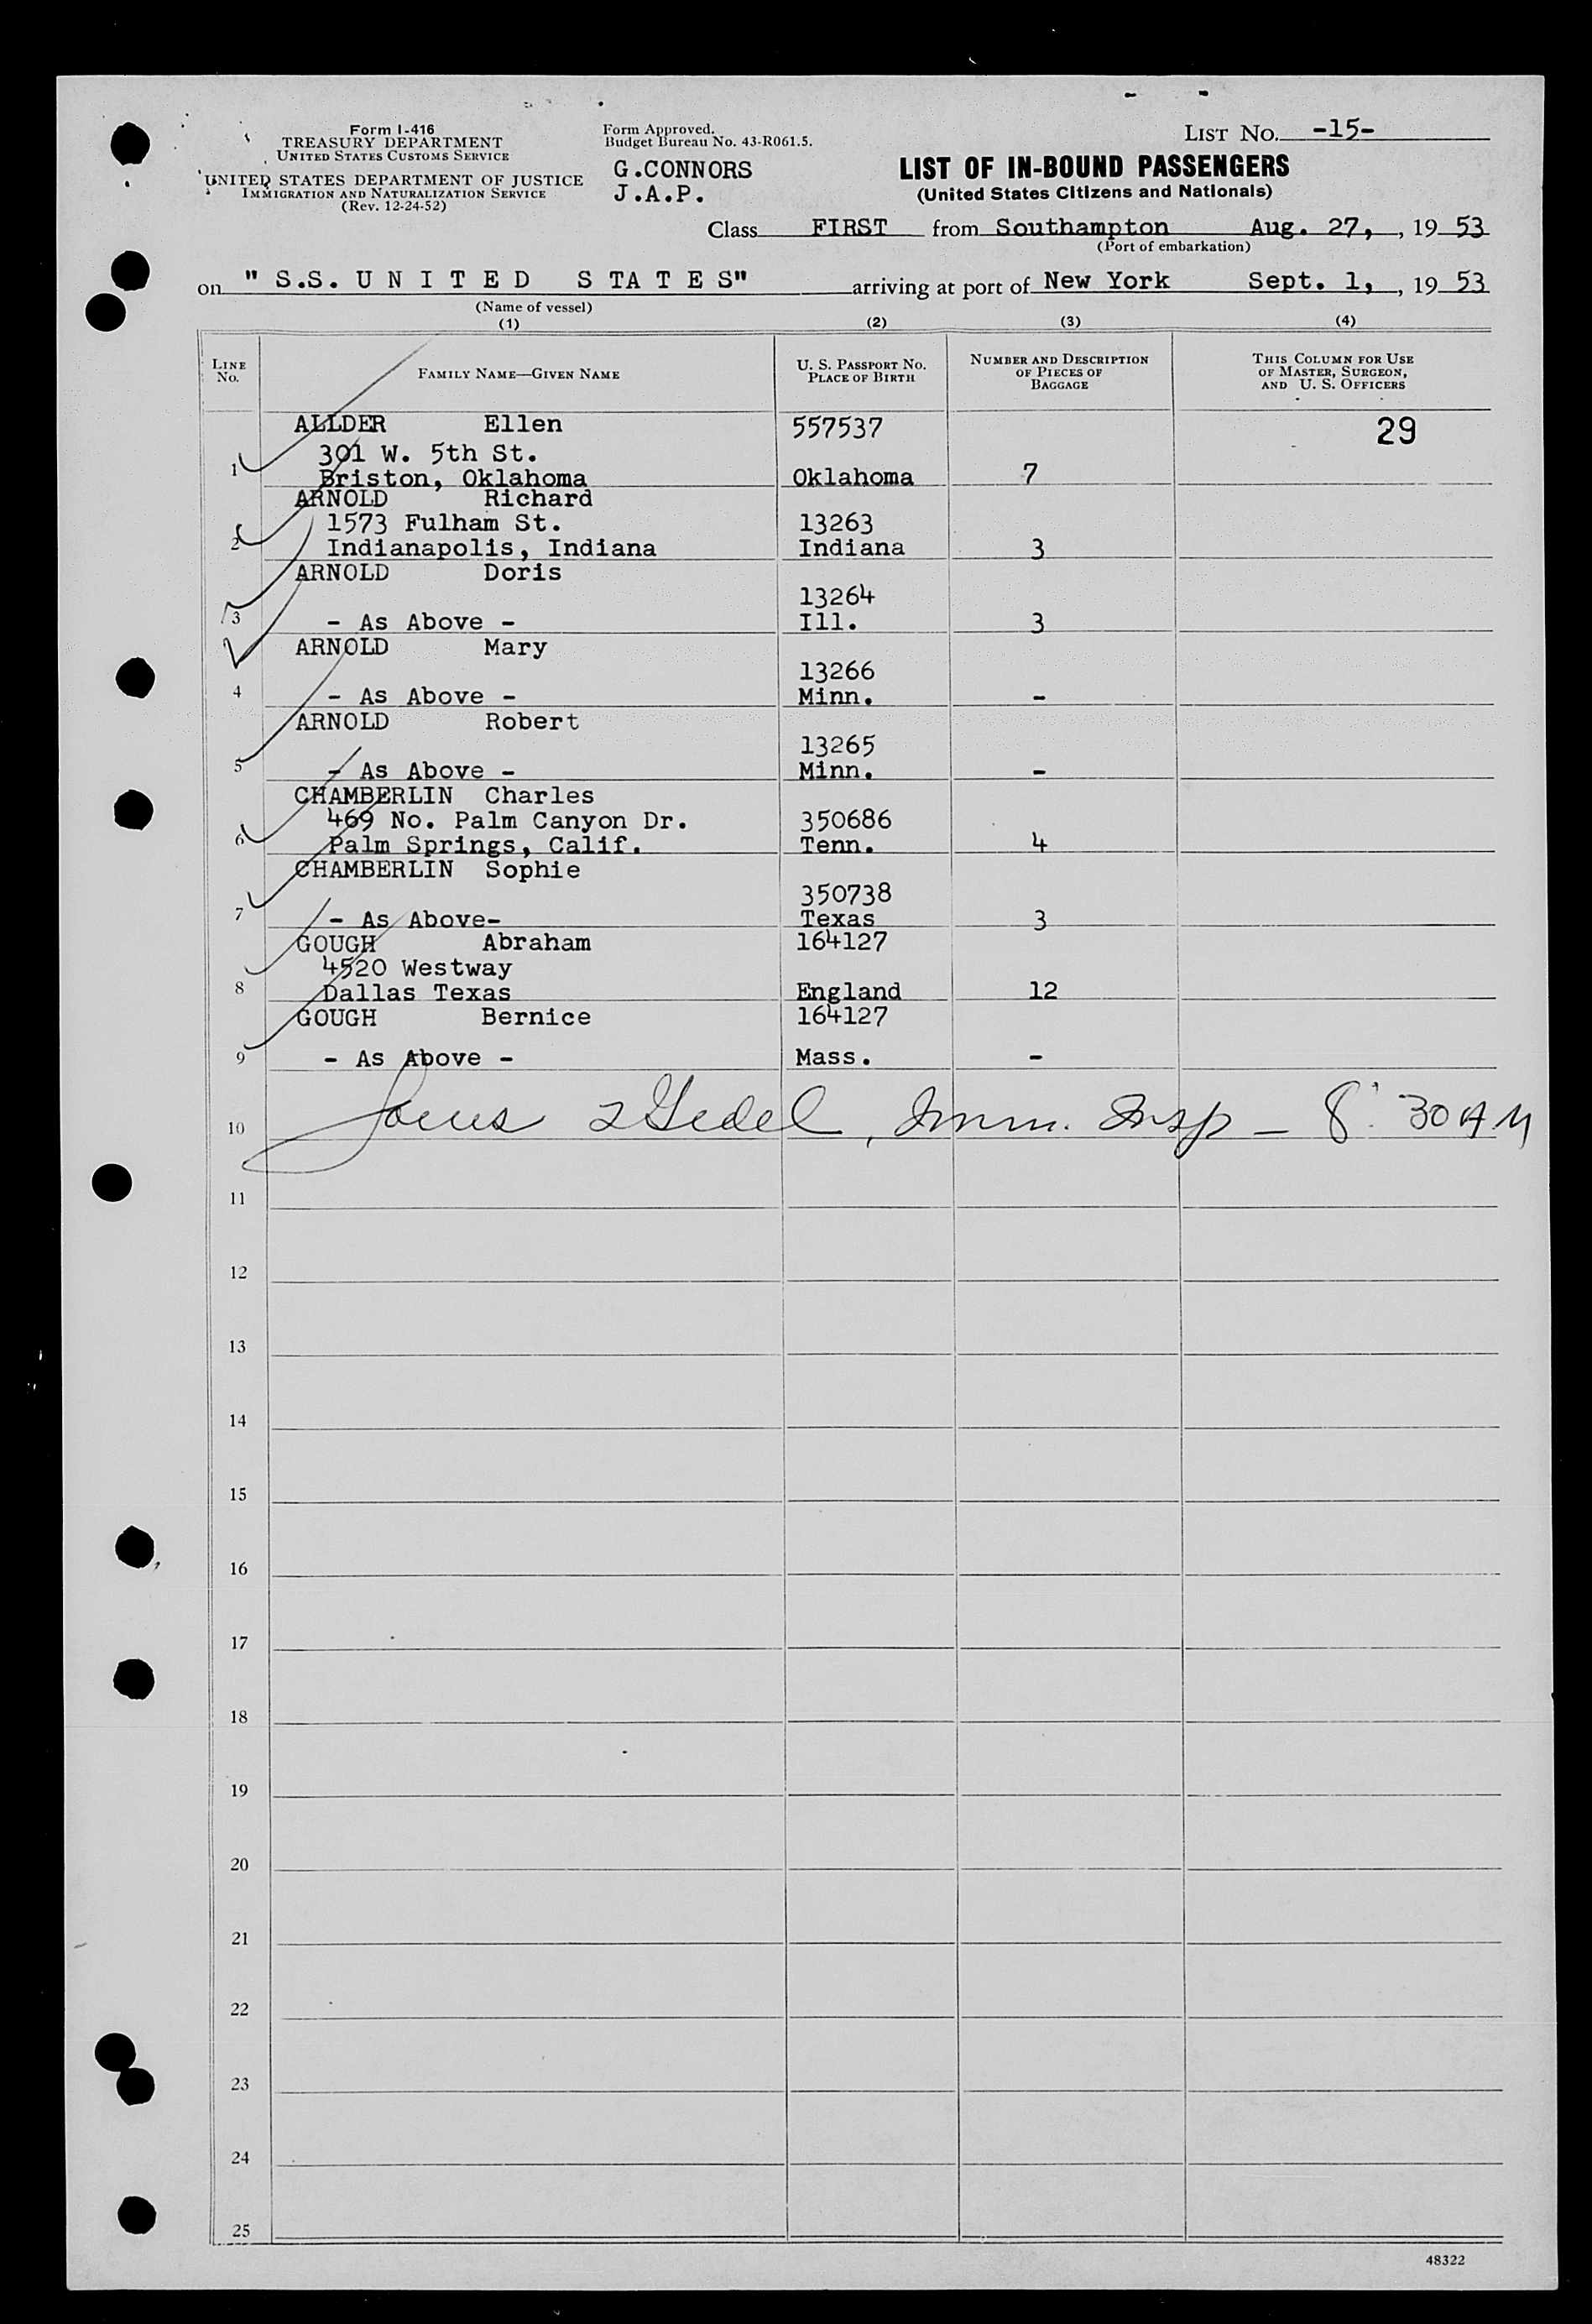 Form I-416
TREASURY DEPARTMENT
UNITED STATES CUSTOMS SERVICE
UNITED STATES DEPARTMENT OF JUSTICE
IMMIGRATION AND NATURALIZATION SERVICE
(Rev. 12-24-52)
Form Approved.
Budget Bureau No. 43-R061.5.
G.CONNORS
J.A.P.
LIST NO. -15-
LIST OF IN-BOUND PASSENGERS
(United States Citizens and Nationals)
Class FIRST from Southampton Aug. 27, , 19 53
(Port of embarkation)
on " S.S. U N I T E D S TA T E S" arriving at port of New York Sept. 1, , 19 53
(Name of vessel)
(1) (2) (3) (4)
LINE No. FAMILY NAME—GIVEN NAME U. S. PASSPORT NO. PLACE OF BIRTH NUMBER AND DESCRIPTION OF PIECES OF BAGGAGE THIS COLUMN FOR USE OF MASTER, SURGEON, AND U. S. OFFICERS
ALLDER Ellen 557537 29
301 W. 5th St.
1 Briston, Oklahoma Oklahoma 7
ARNOLD Richard
1573 Fulham St. 13263
2 Indianapolis, Indiana Indiana 3
ARNOLD Doris
13264
3 - As Above - Ill. 3
ARNOLD Mary
13266
4 - As Above - Minn. -
ARNOLD Robert
13265
5 - As Above - Minn. -
CHAMBERLIN Charles
469 No. Palm Canyon Dr. 350686
6 Palm Springs, Calif. Tenn. 4
CHAMBERLIN Sophie
350738
7 - As Above- Texas 3
GOUGH Abraham 164127
4520 Westway
8 Dallas Texas England 12
GOUGH Bernice 164127
9 - As Above - Mass. -
10 , Imm. Insp - 8:30 AM
11
12
13
14
15
16
17
18
19
20
21
22
23
24
25
48322